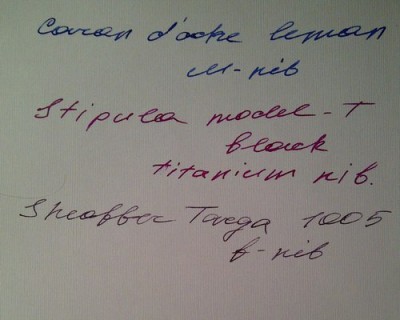 Caran d'ache leman
M-nib
Stipula model-T
black
titanium nib.
Sheaffer Targa 1005
f-nib